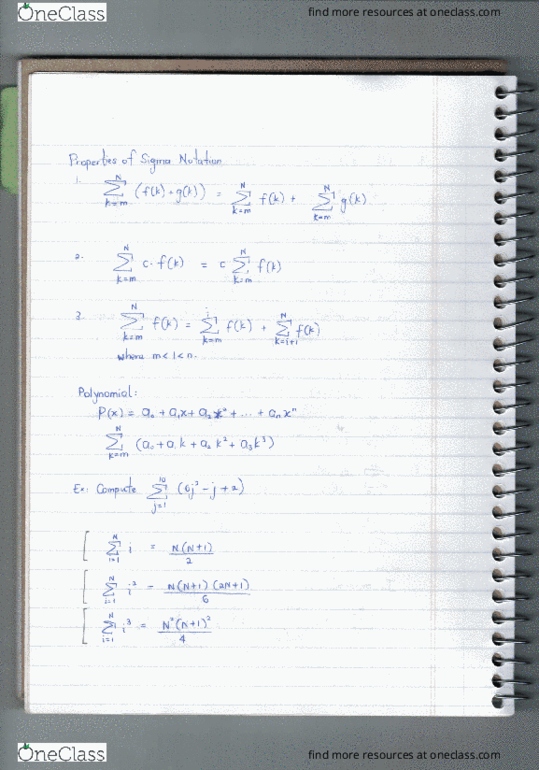 OneClass find more resources at oneclass.com
Properties of Sigma Notation
1. \sum_{k=m}^{N} (f(k) + g(k)) = \sum_{k=m}^{N} f(k) + \sum_{k=m}^{N} g(k)
2. \sum_{k=m}^{N} c · f(k) = c \sum_{k=m}^{N} f(k)
3. \sum_{k=m}^{N} f(k) = \sum_{k=m}^{i} f(k) + \sum_{k=i+1}^{N} f(k)
where m < i < n.
Polynomial:
P(x) = a₀ + a₁x + a₂x² + ... + aₙxⁿ
\sum_{k=m}^{N} (a₀ + a₁k + a₂k² + a₃k³)
Ex: Compute \sum_{j=1}^{10} (6j² - j + 2)
\sum_{i=1}^{N} i = N(N+1) / 2
\sum_{i=1}^{N} i² = N(N+1)(2N+1) / 6
\sum_{i=1}^{N} i³ = N²(N+1)² / 4
OneClass find more resources at oneclass.com